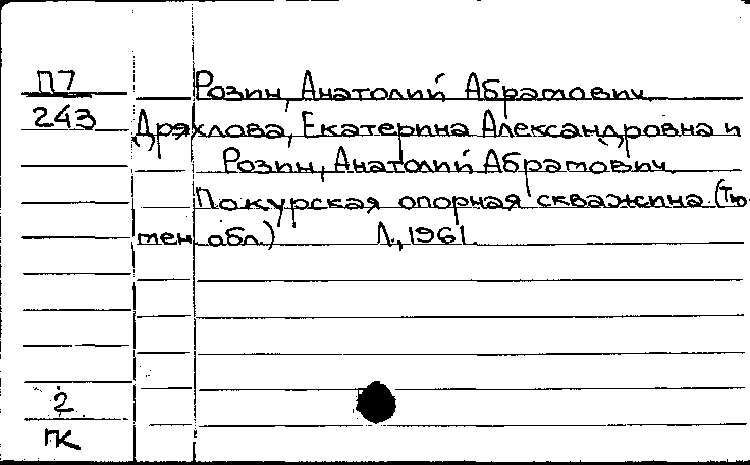 П7
Розин, Анатолий Абрамович.
243
Дряхлова, Екатерина Александровна и
Розин, Анатолий Абрамович.
Покурская опорная скважина. (Тю-
мен. обл.) Л., 1961.
2
ГК